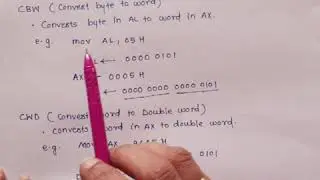 CBW ( Convert byte to word )
• Converts byte in AL to word in AX.
e.g. mov AL, 05 H
← 0000 0101
AX ← 0005 H
← 0000 0000 0000 0101
CWD ( Convert word to Double word )
• converts word in AX to double word.
e.g. Mov AX,
0101